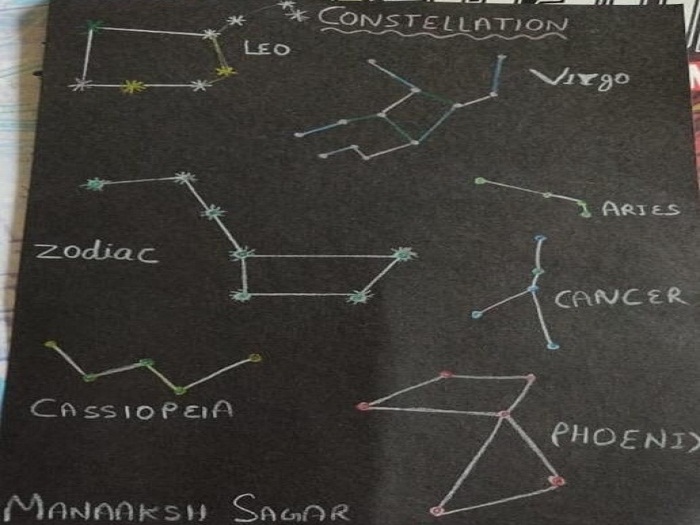 CONSTELLATION
LEO
Virgo
ARIES
Zodiac
CANCER
CASSIOPEIA
PHOENIX
MANAAKSH SAGAR